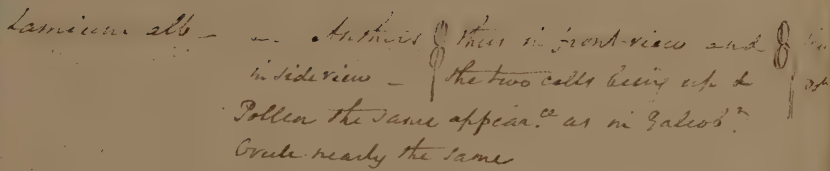 Lamium alb — — Anthers thus in front-view and
in side view — the two cells being up &
Pollen the same appear.ce as in Galeob.n
Ovule nearly the same